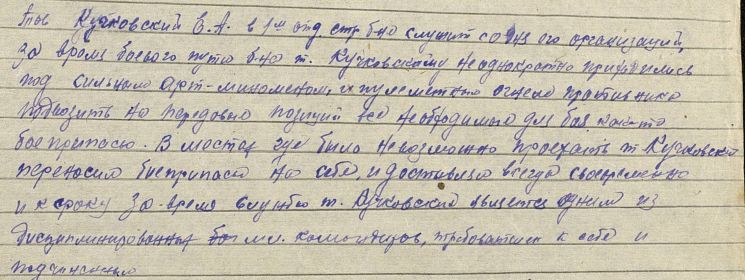 Тов Кучковский Е.А. в 1м отд стр б-не служит со дня его организаций,
За время боевого пути б-на т. Кучковскому неоднократно приходилось
под сильным арт-минометном и пулеметным огнем противника
подвозить на передовые позиций все необходимое для боя как-то
боеприпасы. В местах где было невозможно проехать т Кучковский
переносил боеприпасы на себе, и доставлял всегда своевременно
и к сроку За-время службы т. Кучковский является одним из
дисциплинированных мл. командиров, требователен к себе и
подчиненным